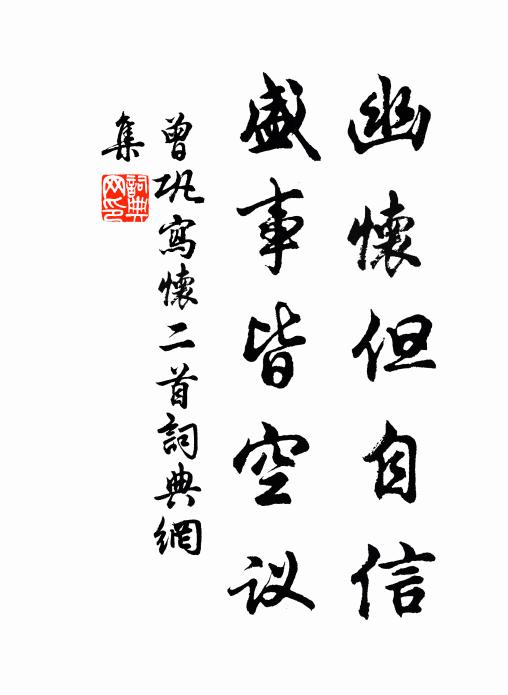 幽懷但自信
盛事皆空议
曾巩寫懷二首詞典網
集
詞典
网印